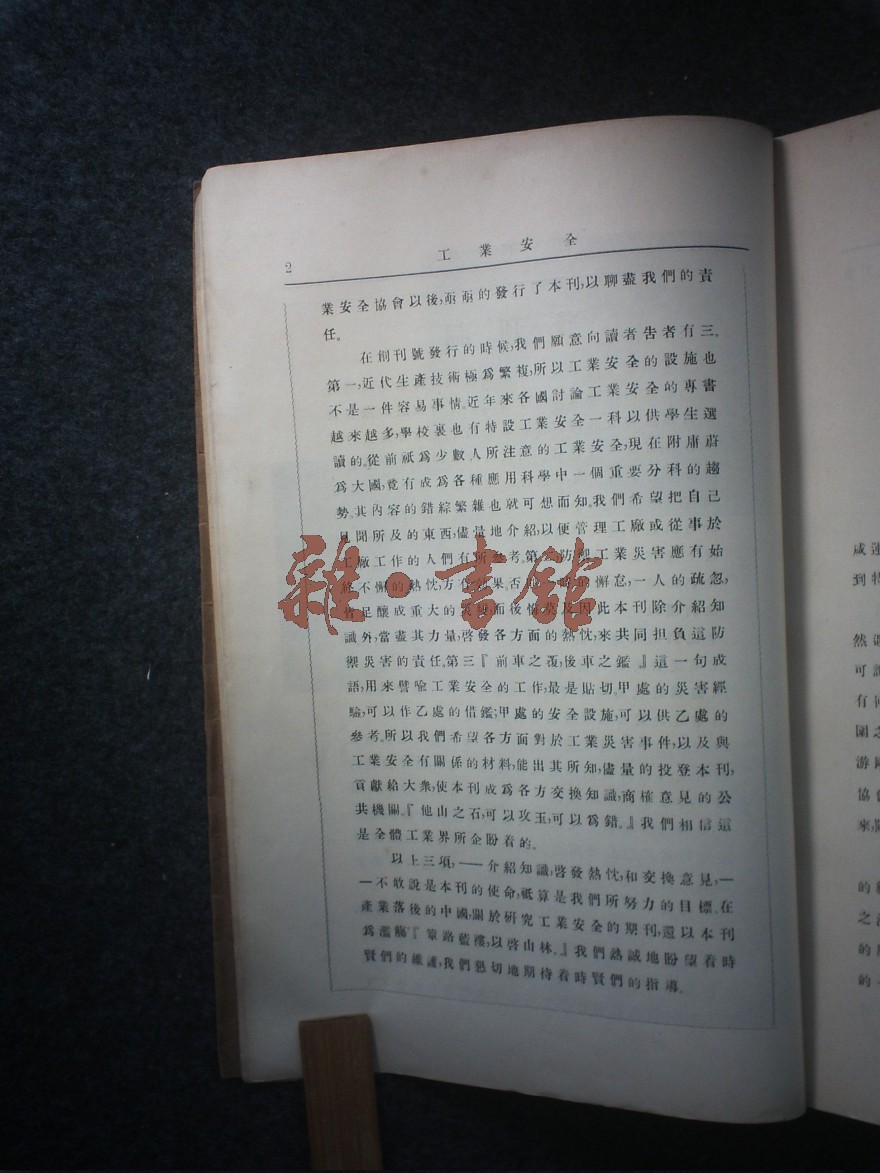 2
工業安全
業安全協會以後,亟亟的發行了本刊,以聊盡我們的責
任。
在創刊號發行的時候,我們願意向讀者告者有三。
第一,近代生產技術極爲繁複,所以工業安全的設施也
不是一件容易事情。近年來各國討論工業安全的專書
越來越多,學校裏也有特設工業安全一科以供學生選
讀的。從前祇爲少數人所注意的工業安全,現在附庸蔚
爲大國,竟有成爲各種應用科學中一個重要分科的趨
勢。其內容的錯綜繁雜也就可想而知。我們希望把自己
見聞所及的東西,儘量地介紹,以便管理工廠或從事於
工廠工作的人們有所參考。第二,防禦工業災害應有始
終不懈的熱忱,方有效果。否則一時的懈怠,一人的疏忽,
皆足釀成重大的災變,而後悔莫及。因此本刊除介紹知
識外,當盡其力量,啓發各方面的熱忱,來共同担負這防
禦災害的責任。第三『前車之覆,後車之鑑』這一句成
語,用來譬喩工業安全的工作,最是貼切。甲處的災害經
驗,可以作乙處的借鑑;甲處的安全設施,可以供乙處的
參考。所以我們希望各方面對於工業災害事件,以及與
工業安全有關係的材料,能出其所知,儘量的投登本刊,
貢獻給大衆,使本刊成爲各方交換知識,商榷意見的公
共機關。『他山之石,可以攻玉,可以爲錯。』我們相信這
是全體工業界所企盼着的。
以上三項,——介紹知識,啓發熱忱,和交換意見,—
—不敢說是本刊的使命,祇算是我們所努力的目標。在
產業落後的中國,關於研究工業安全的期刊,還以本刊
爲濫觴『篳路藍褸,以啓山林。』我們熱誠地盼望着時
賢們的維護,我們懇切地期待着時賢們的指導。
到特
可
有
圍之
游
協會
來,
的
之
的
的
雜·書館